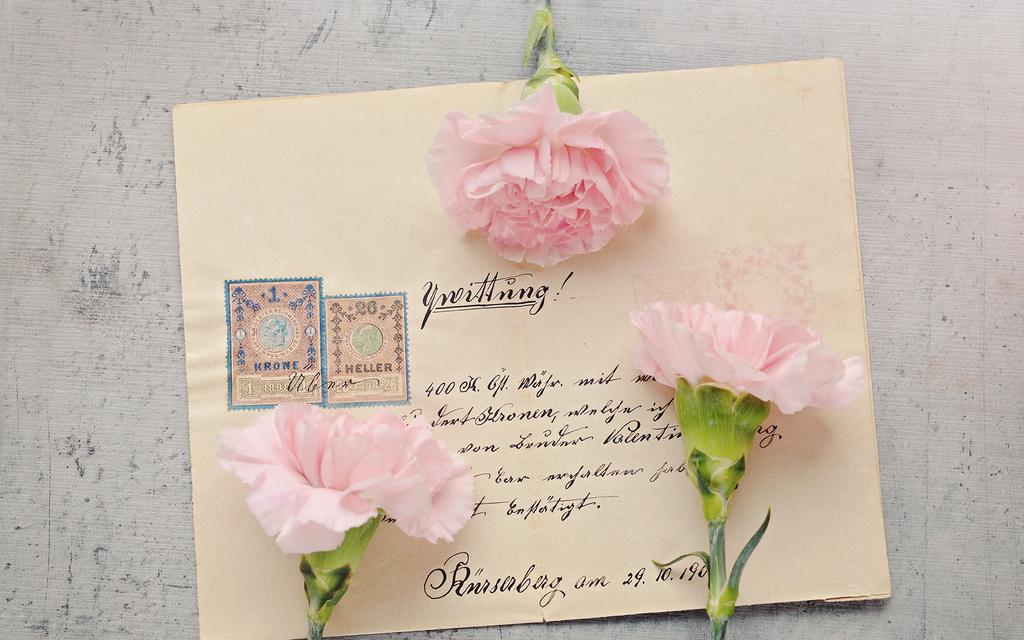 1
KRONE
1 1898 1
26
HELLER
26 1898 26
Quittung!
Über 400 K. Öst. Währ. mit
dert Kronen, welche ich
von Bruder Valentin
bar erhalten hab
t bestätigt.
Kürserberg am 29. 10. 190